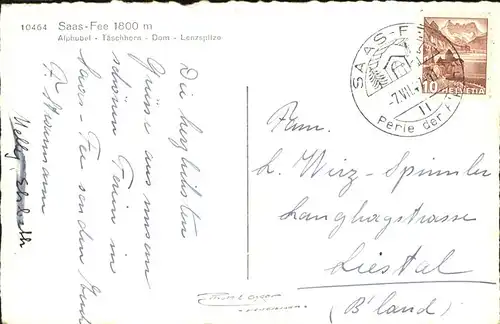 10464 Saas-Fee 1800 m
Alphubel - Täschhorn - Dom - Lenzspitze
Die herzlichsten
Grüsse aus unseren
schönen Ferien in
Saas-Fee senden Euch
Nelly, Elisabeth
SAAS-FEE
-7.VII.
11
Perle der
10 HELVETIA
Fam.
L. Wirz-Spinnler
Langhagstrasse
Liestal
(B'land)